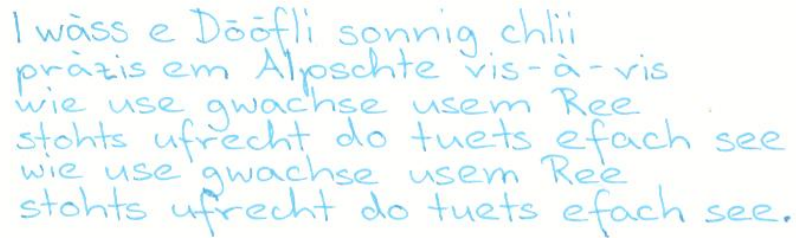 I wàss e Dòòfli sonnig chlii
pràzis em Alpschte vis-à-vis
wie use gwachse usem Ree
stohts ufrecht do tuets efach see
wie use gwachse usem Ree
stohts ufrecht do tuets efach see.